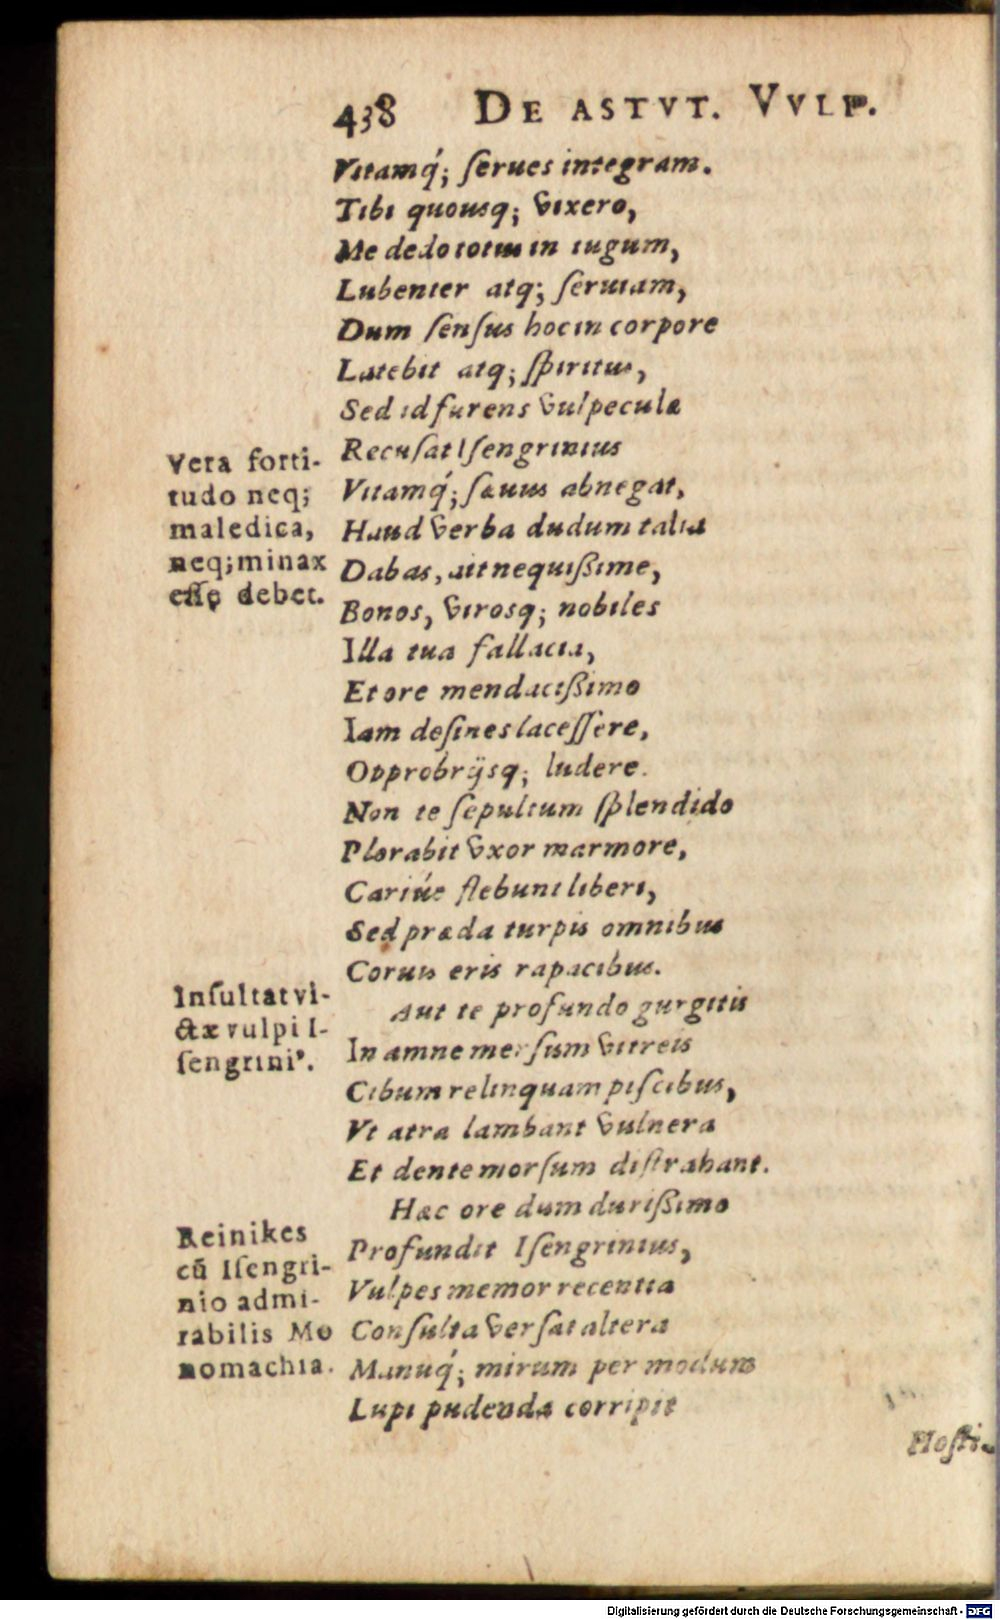 438 DE ASTVT. VVLP.
Vitamq́; ſerues integram.
Tibi quouſq; vixero,
Me dedo totum in iugum,
Lubenter atq; ſeruiam,
Dum ſenſus hoc in corpore
Latebit atq; ſpiritus,
Sed id furens vulpeculæ
Recuſat Iſengrinius
Vitamq́; ſæuus abnegat,
Haud verba dudum talia
Dabas, ait nequißime,
Bonos, virosq; nobiles
Illa tua fallacia,
Et ore mendacißimo
Iam deſines laceſſere,
Opprobrijsq; ludere.
Non te ſepultum ſplendido
Plorabit vxor marmore,
Cariúe flebunt liberi,
Sed præda turpis omnibus
Coruis eris rapacibus.
Aut te profundo gurgitis
In amne merſum vitreis
Cibum relinquam piſcibus,
Vt atra lambant vulnera
Et dente morſum diſtrahant.
Hæc ore dum durißimo
Profundit Iſengrinius,
Vulpes memor recentia
Conſulta verſat altera
Manuq́; mirum per modum
Lupi pudenda corripit
Hoſti-
Vera forti-
tudo neq;
maledica,
neq; minax
eſſe debet.
Inſultat vi-
ctæ vulpi I-
ſengrini⁹.
Reinikes
cū Iſengri-
nio admi-
rabilis Mo
nomachia.
Digitalisierung gefördert durch die Deutsche Forschungsgemeinschaft - DFG